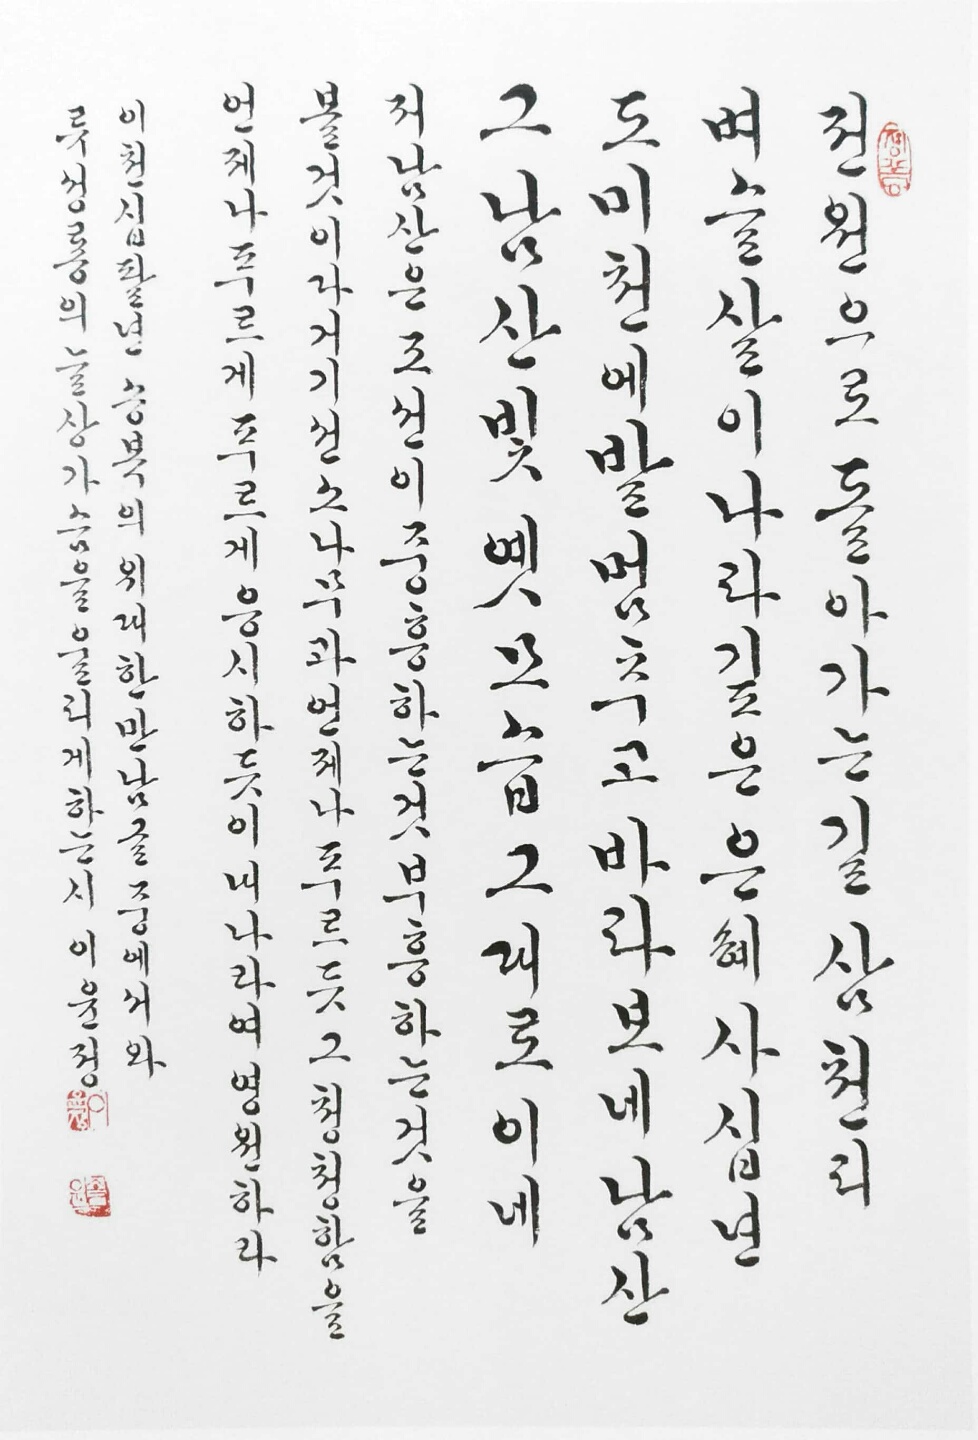 전원으로 돌아가는길 삼천리
벼슬살이나라깊은은혜사십년
도미천에발멈추고바라보네남산
그남산빛 옛모습그대로이네
저남산은조선이중흥하는것부흥하는것을
볼것이라거기선소나무과언제나푸르듯그청청함을
언제나푸르게푸르게응시하듯이내나라여영원하라
이천십팔년 송북의위대한만남글중에서와
룻성룡의눌상가슴을울리게하는시 이윤정